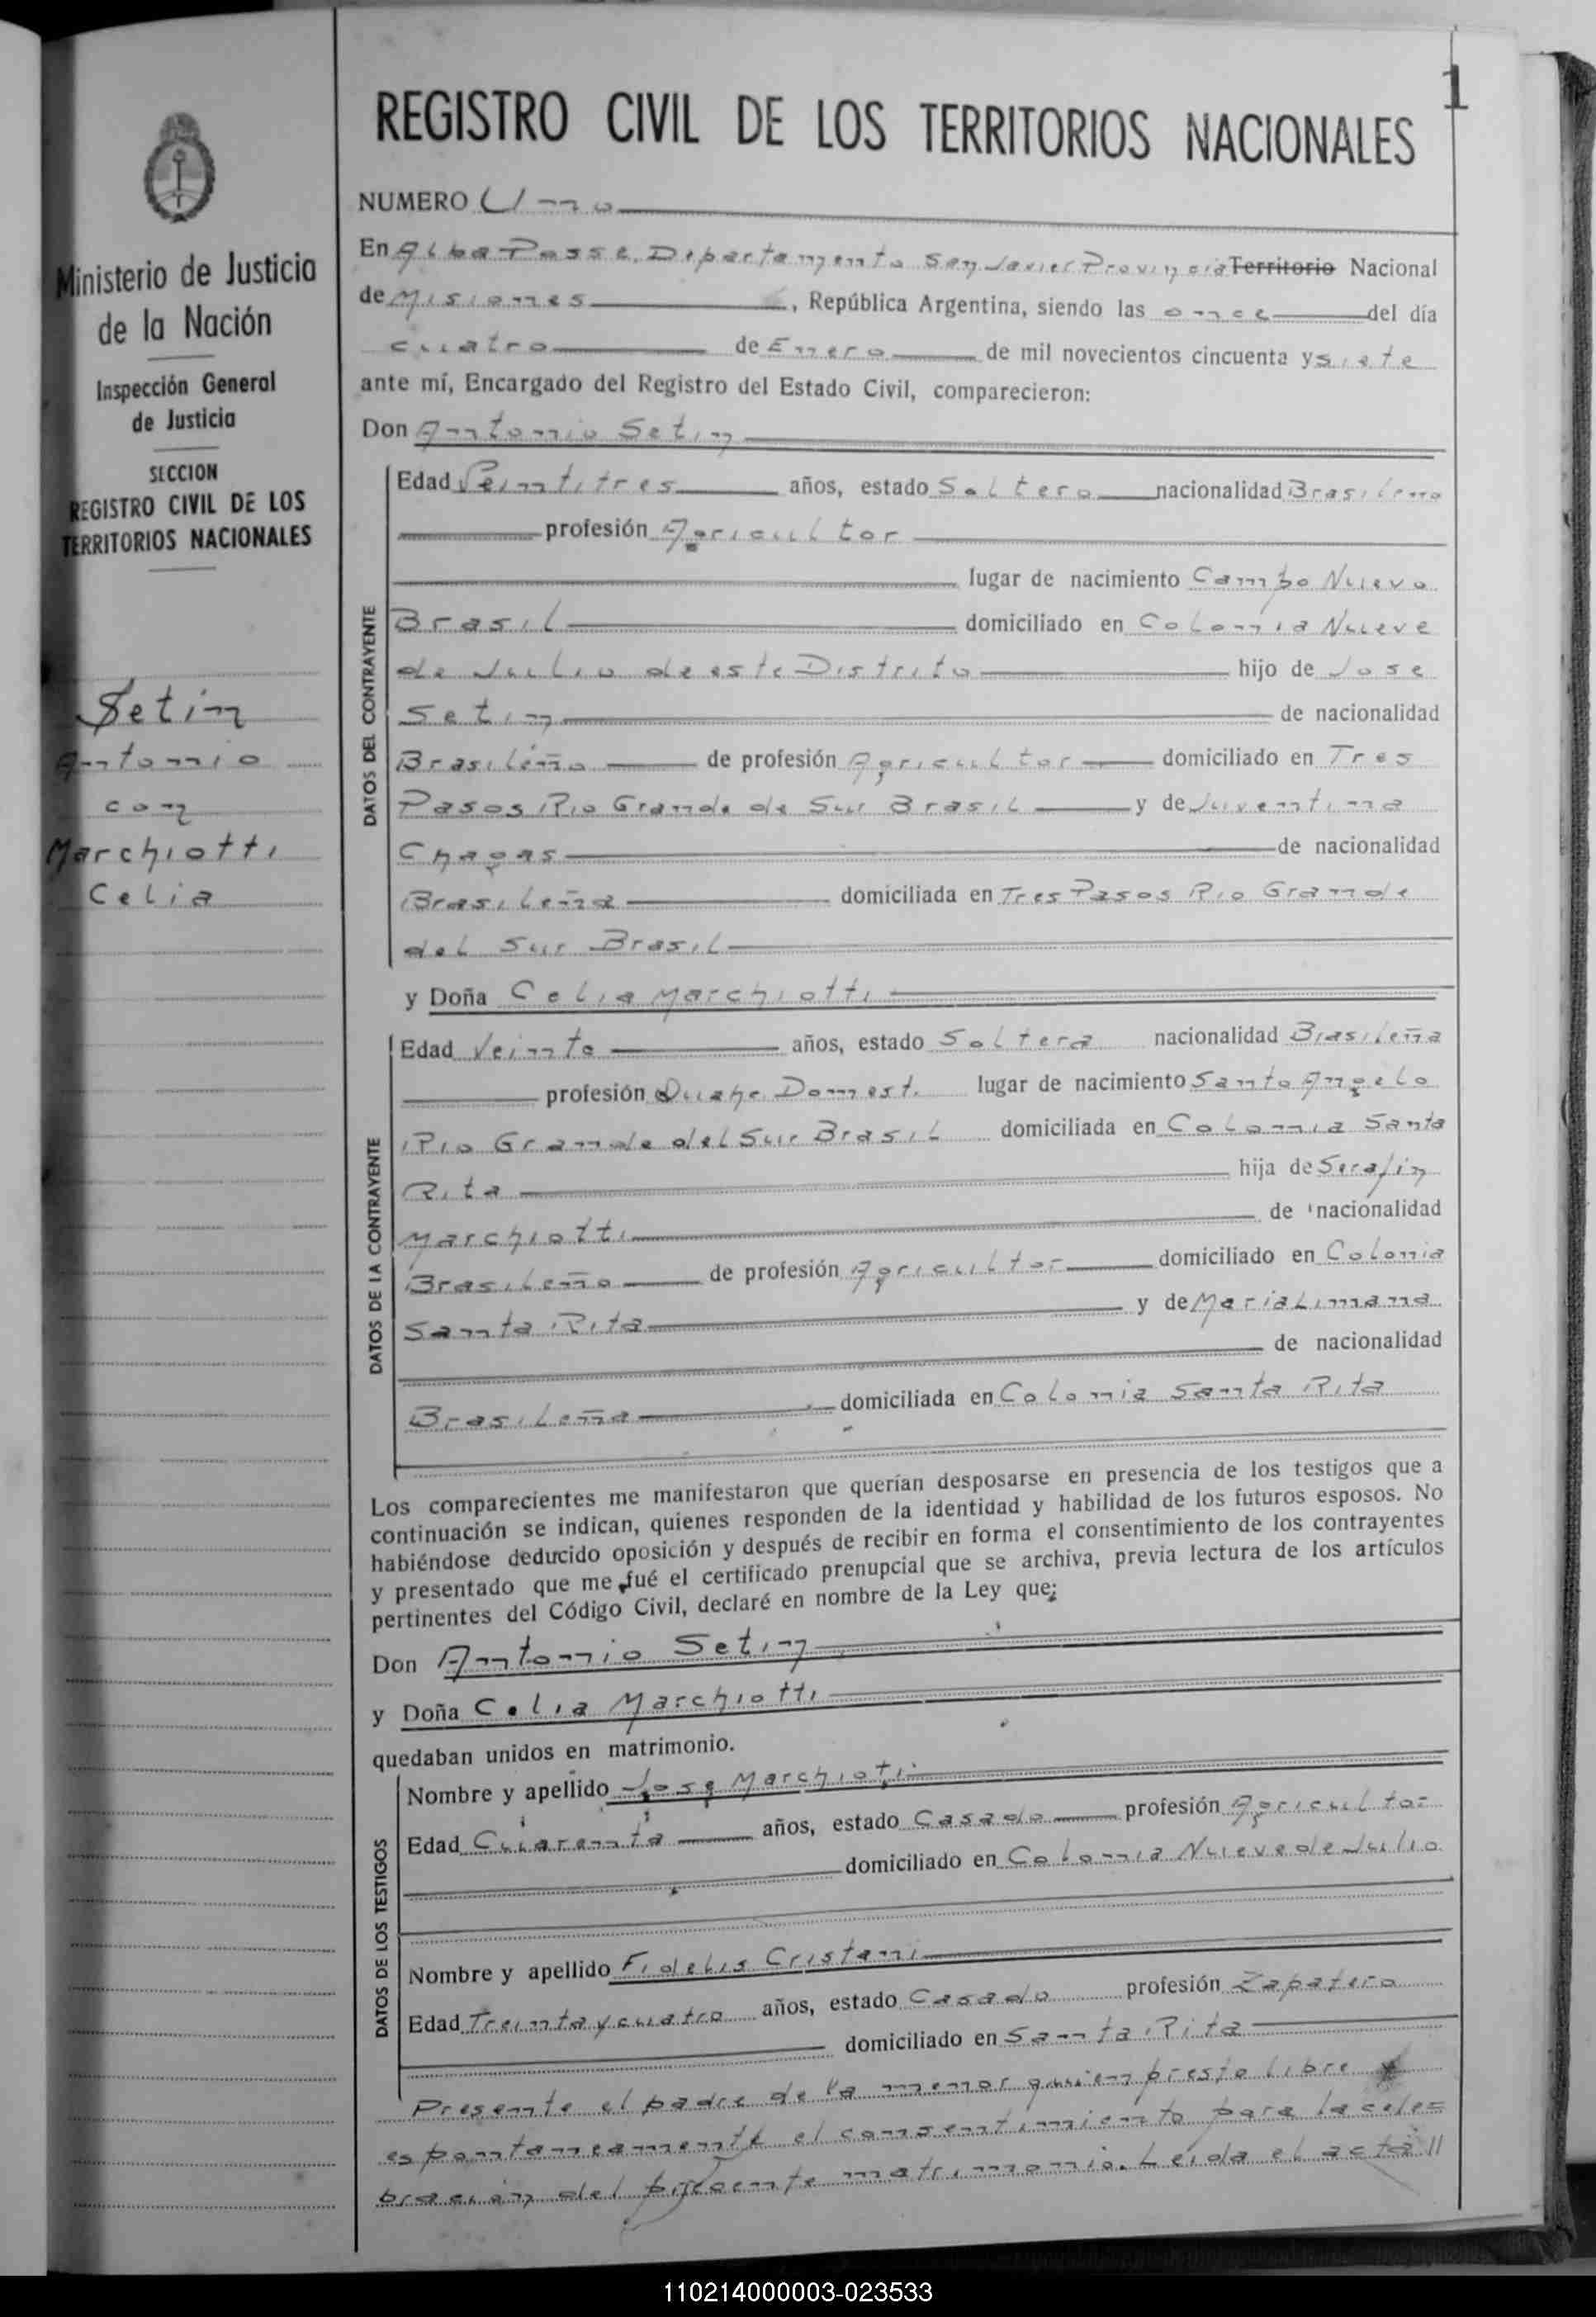 1
REGISTRO CIVIL DE LOS TERRITORIOS NACIONALES
Ministerio de Justicia
de la Nación
Inspección General
de Justicia
SECCION
REGISTRO CIVIL DE LOS
TERRITORIOS NACIONALES
Setin
Antonio
con
Marchiotti
Celia
NUMERO Uno
En Alba Posse. Departamento San Javier Provincia Territorio Nacional
de Misiones, República Argentina, siendo las once del día
cuatro de Enero de mil novecientos cincuenta y siete
ante mí, Encargado del Registro del Estado Civil, comparecieron:
Don Antonio Setin
DATOS DEL CONTRAYENTE
Edad Veintitres años, estado Soltero nacionalidad Brasileno
profesión Agricultor
lugar de nacimiento Campo Nuevo
Brasil domiciliado en Colonia Nueve
de Julio de este Distrito hijo de Jose
Setin de nacionalidad
Brasileño de profesión Agricultor domiciliado en Tres
Pasos Rio Grande de Sur Brasil y de Juventina
Chagas de nacionalidad
Brasileña domiciliada en Tres Pasos Rio Grande
del Sur Brasil
y Doña Celia Marchiotti
DATOS DE LA CONTRAYENTE
Edad Veinte años, estado Soltera nacionalidad Brasileña
profesión Quehe. Domest. lugar de nacimiento Santo Angelo
Rio Grande del Sur Brasil domiciliada en Colonia Santa
Rita hija de Serafin
Marchiotti de nacionalidad
Brasileño de profesión Agricultor domiciliado en Colonia
Santa Rita y de Maria Limana
de nacionalidad
Brasileña domiciliada en Colonia Santa Rita
Los comparecientes me manifestaron que querían desposarse en presencia de los testigos que a
continuación se indican, quienes responden de la identidad y habilidad de los futuros esposos. No
habiéndose deducido oposición y después de recibir en forma el consentimiento de los contrayentes
y presentado que me fué el certificado prenupcial que se archiva, previa lectura de los artículos
pertinentes del Código Civil, declaré en nombre de la Ley que;
Don Antonio Setin
y Doña Celia Marchiotti
quedaban unidos en matrimonio.
DATOS DE LOS TESTIGOS
Nombre y apellido Jose Marchioti
Edad Cuarenta años, estado Casado profesión Agricultor
domiciliado en Colonia Nueve de Julio
Nombre y apellido Fidelis Cristani
Edad Treinta y cuatro años, estado Casado profesión Zapatero
domiciliado en Santa Rita
Presente el padre de la menor quien presto libre y
espontaneamente el consentimiento para la cele=
bracion del presente matrimonio. Leida el acta //
110214000003-023533